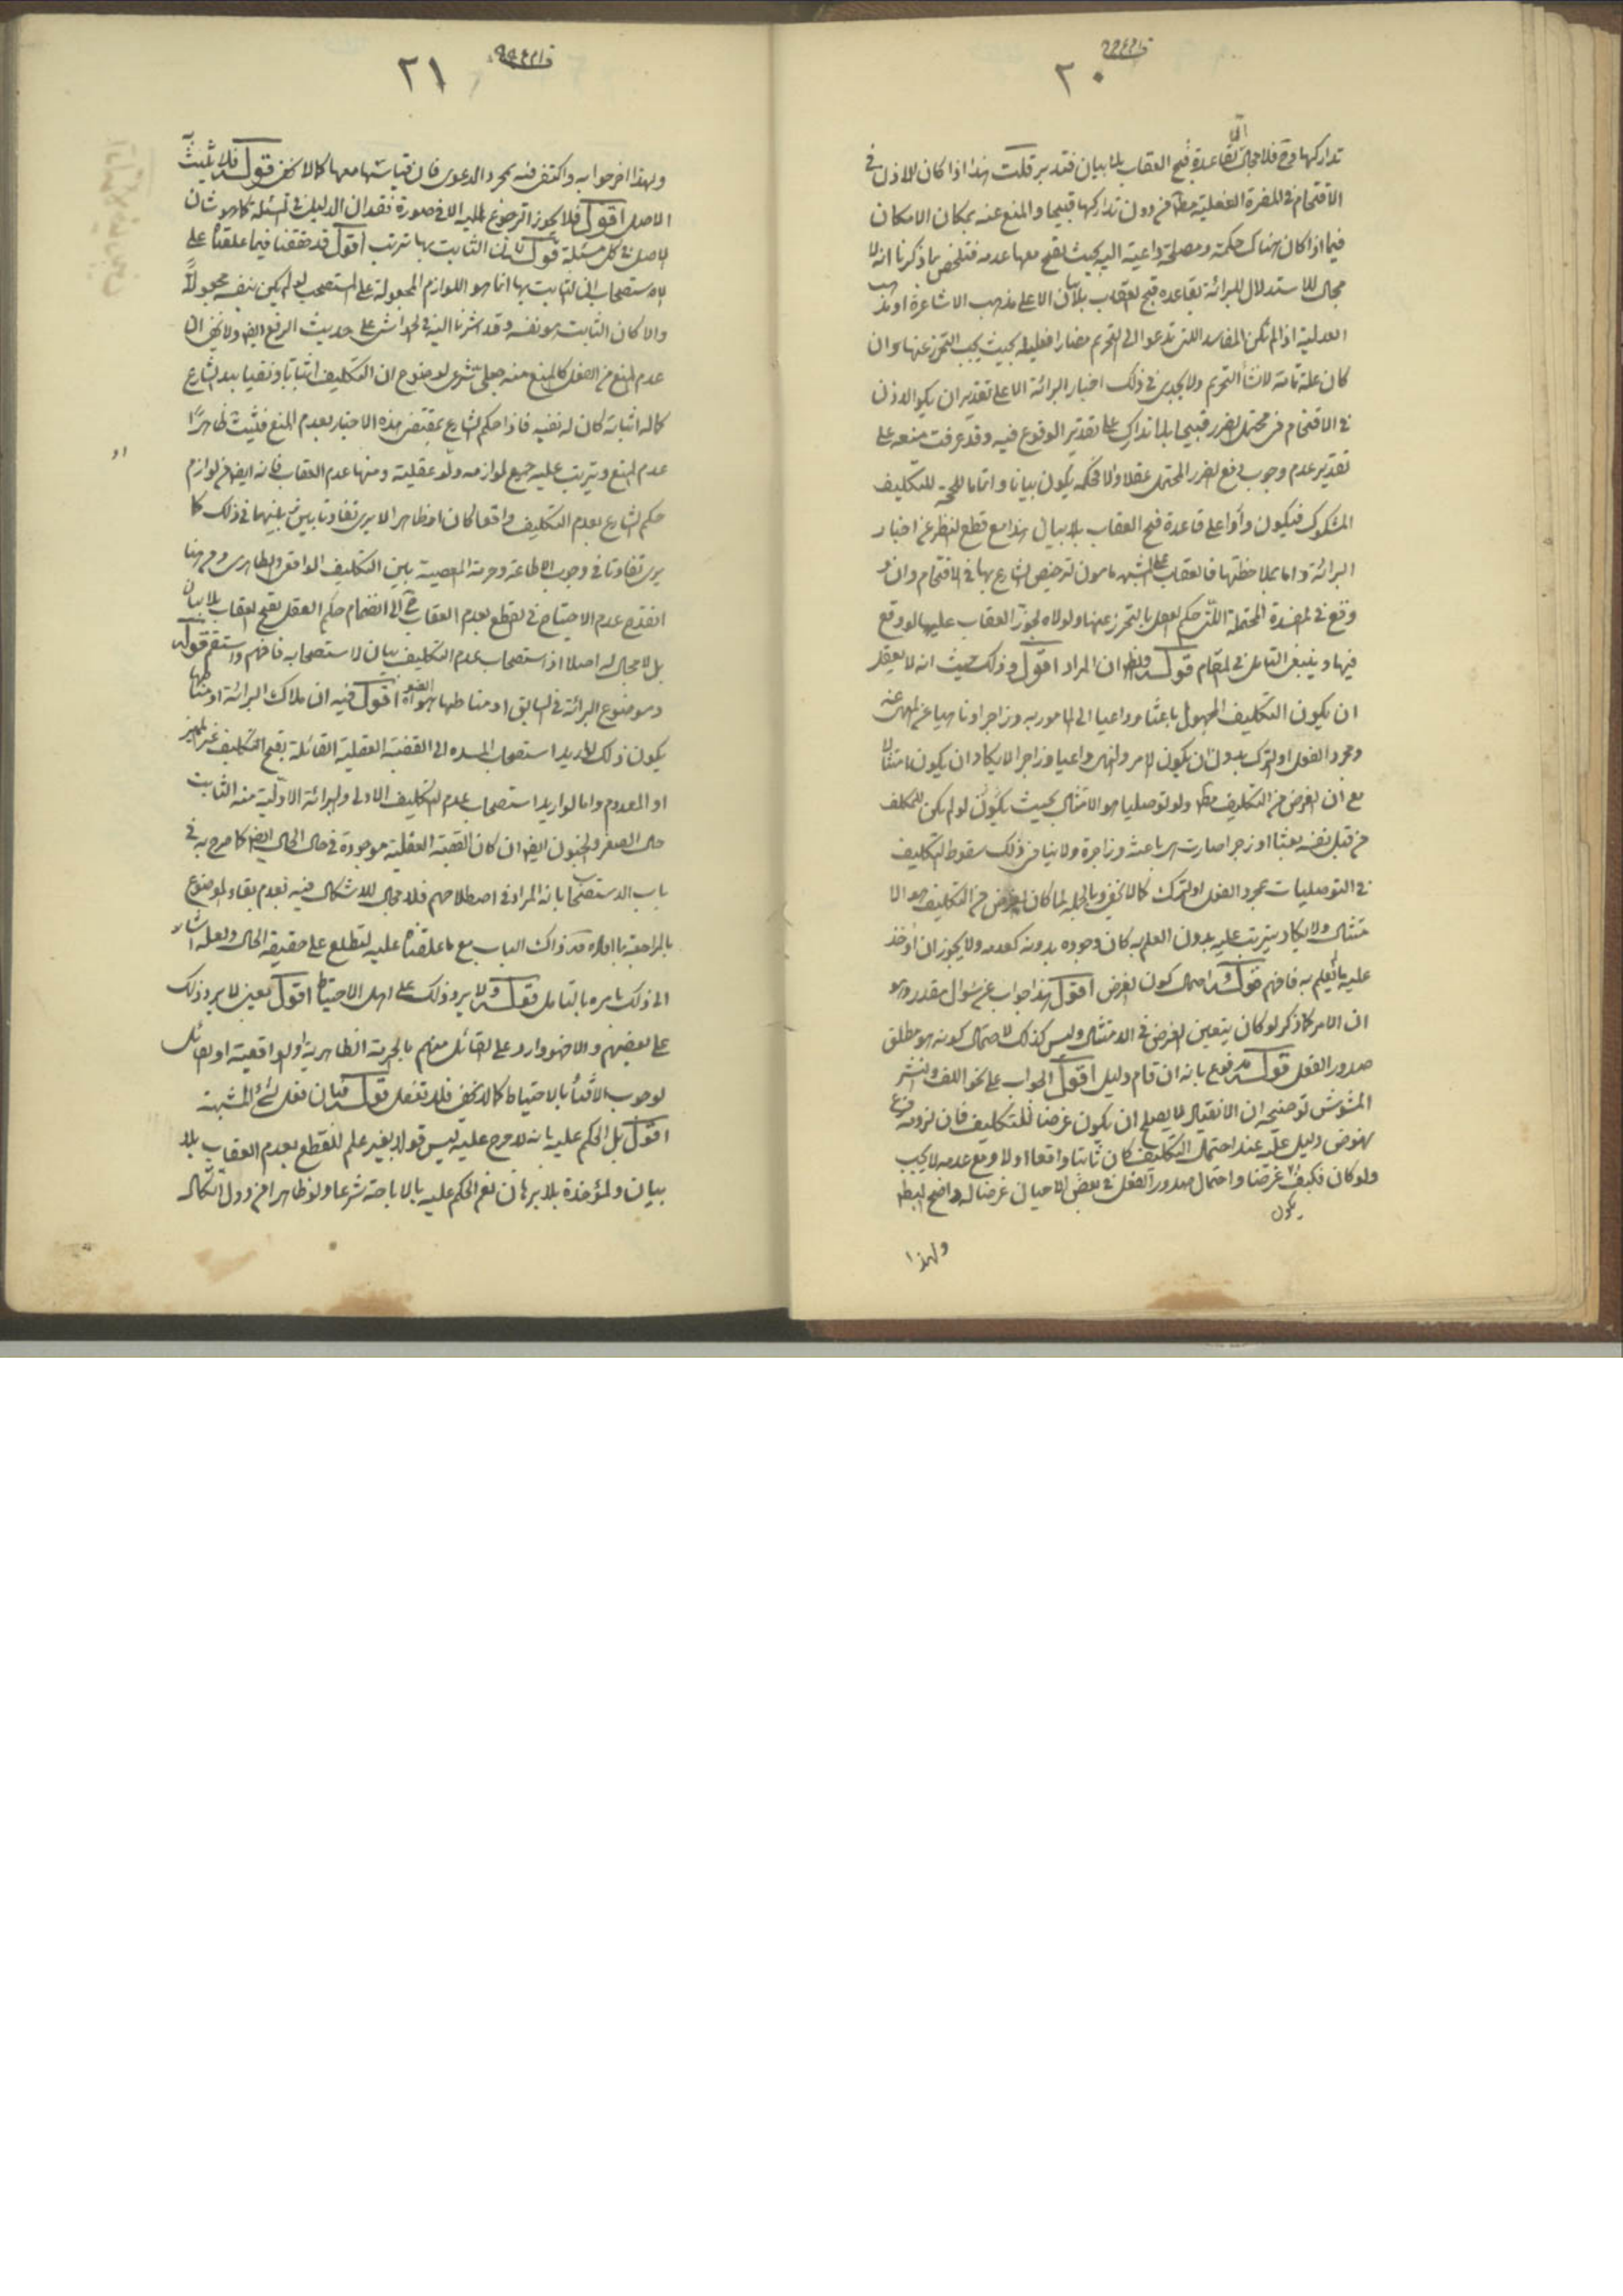 ٢٠
تداركها وح فلا مجال لقاعدة قبح العقاب بلا بيان فتدبر قلت هذا اذا كان الاذن في
الاقتحام في المضرة الفعلية مطلقا من دون تداركها قبيحا والمنع عنه بمكان الامكان
فيما اذا كان هناك حكمة ومصلحة داعية اليه بحيث يقبح معها عدمه فتلخص بما ذكرنا انه لا
مجال للاستدلال للبرائة بقاعدة قبح العقاب بلا بيان الا على مذهب الاشاعرة او مذهب
العدلية اذا لم تكن المفاسد التي تدعو الى التحريم مضارا فعلية بحيث يجب التحرز عنها وان
كان علة تامة لانشاء التحريم ولا يجدي في ذلك اخبار البرائة الا على تقدير ان يكون الاذن
في الاقتحام في محتمل الضرر قبيحا بلا تدارك على تقدير الوقوع فيه وقد عرفت منعه على
تقدير عدم وجوب دفع الضرر المحتمل عقلا والا فحكمه يكون بيانا واتماما للحجة للتكليف
المشكوك فيكون واردا على قاعدة قبح العقاب بلا بيان هذا مع قطع النظر عن اخبار
البرائة واما بملاحظتها فالعقاب على الشبهة مأمون لترخيص الشارع بها في الاقتحام وان
وقع في المفسدة المحتملة التي حكم العقل بالتحرز عنها ولولاه لجوز العقاب عليها لو وقع
فيها وينبغي التامل في المقام قوله والظاهر ان المراد اقول وذلك حيث انه لا يعقل
ان يكون التكليف المجهول باعثا وداعيا الى المامور به وزاجرا وناهيا عن المنهي عنه
ومجرد الفعل او الترك بدون ان يكون الامر والنهي داعيا وزاجرا لا يكاد ان يكون امتثالا
مع ان الغرض من التكليف مطلقا ولو توصليا هو الامتثال بحيث يكون لو لم يكن للمكلف
من قبل نفسه بعثا او زجرا صارت باعثة وزاجرة ولا ينافي ذلك سقوط التكليف
في التوصليات بمجرد الفعل او الترك كما لا يخفى وبالجملة لما كان الغرض من التكليف هو الا
متثال ولا يكاد يترتب عليه بدون العلم به كان وجوده بدونه كعدمه ولا يجوز ان يؤاخذ
عليه ما لم يعلم به فافهم قوله واحتمال كون الغرض اقول هذا جواب عن سؤال مقدر وهو
ان الامر كما ذكر لو كان يتعين الغرض في الامتثال وليس كذلك لاحتمال كونه هو مطلق
صدور الفعل قوله مدفوع بانه ان قام دليل اقول الجواب على نحو اللف والنشر
المشوش توضيحه ان الانقياد لا يصلح ان يكون غرضا للتكليف فان لزومه فرع
نهوض دليل عليه عند احتمال التكليف كان ثابتا واقعا اولا ومع عدمه لا يجب
ولو كان فكيف يكون غرضا واحتمال صدور الفعل في بعض الاحيان غرضا له واضح البطلان
ولهذا
٢١
ولهذا افرد جوابه واكتفى فيه بمجرد الدعوى فان قياسها معها كما لا يخفى قوله فلا يثبت
الاصل اقول فلا يجوز الرجوع اليه الا في صورة فقدان الدليل في المسئلة كما هو شان
الاصل في كل مسئلة قوله لان الثابت بها ترتب اقول قد حققنا فيما علقناه على
الاستصحاب ان الثابت بها انما هو اللوازم المجعولة على المستصحب لو لم يكن بنفسه مجعولا
والا كان الثابت هو نفسه وقد اشرنا اليه في الحواشي على حديث الرفع ايضا ولا يخفى ان
عدم المنع من الفعل كالمنع منه جعلي شرعي لوضوح ان التكليف اثباتا ونفيا بيد الشارع
كما له اثباته كان له نفيه فاذا حكم الشارع بمقتضى هذه الاخبار بعدم المنع فيثبت ظاهرا
عدم المنع ويترتب عليه جميع لوازمه ولو عقلية ومنها عدم العقاب فانه ايضا من لوازم
حكم الشارع بعدم التكليف واقعا كان او ظاهرا لا يرى تفاوتا بين بينهما في ذلك كما
يرى تفاوتا في وجوب الاطاعة وحرمة المعصية بين التكليف الواقعي والظاهري ومن هنا
انقدح عدم الاحتياج في القطع بعدم العقاب ح الى انضمام حكم العقل بقبح العقاب بلا بيان
بل لا مجال له اصلا اذ استصحاب عدم التكليف بيان لاستصحابه فافهم واستقم قوله
وموضوع البرائة في السابق او مناطها هو الصغير اقول فيه ان ملاك البرائة او مناطها
يكون ذلك لو اريد استصحاب المستندة الى القضية العقلية القائلة بقبح التكليف غير المميز
او المعدوم واما لو اريد استصحاب عدم التكليف الاولى والبرائة الاولية منه الثابت
حال الصغر والجنون ايضا وان كان القضية العقلية موجودة في حال الحال ايضا كما صرح به في
باب الاستصحاب بانه المراد في اصطلاحهم فلا مجال للاشكال فيه بعدم بقاء الموضوع
بالمراجعة ما افاده في ذاك الباب مع ما علقناه عليه لتطلع على حقيقة الحال ولعله اشار
الى ذلك بامره بالتامل قوله ولا يرد ذلك على اهل الاحتياط اقول يعني لا يرد ذلك
على بعضهم والا فهو وارد على القائل منهم بالحرمة الظاهرية او الواقعية او القائل
لوجوب الافتاء بالاحتياط كما لا يخفى فلا تغفل قوله فان فعل الشئ المشتبه
اقول بل الحكم عليه بانه لا حرج عليه ليس قولا بغير علم للقطع بعدم العقاب بلا
بيان والمؤاخذة بلا برهان نعم الحكم عليه بالاباحة شرعا ولو ظاهرا من دون اتكاله